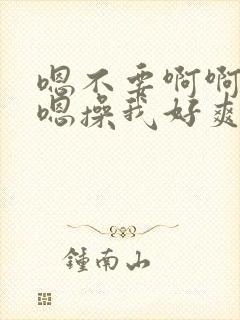 嗯不要啊啊
嗯操我好爽
鍾南山